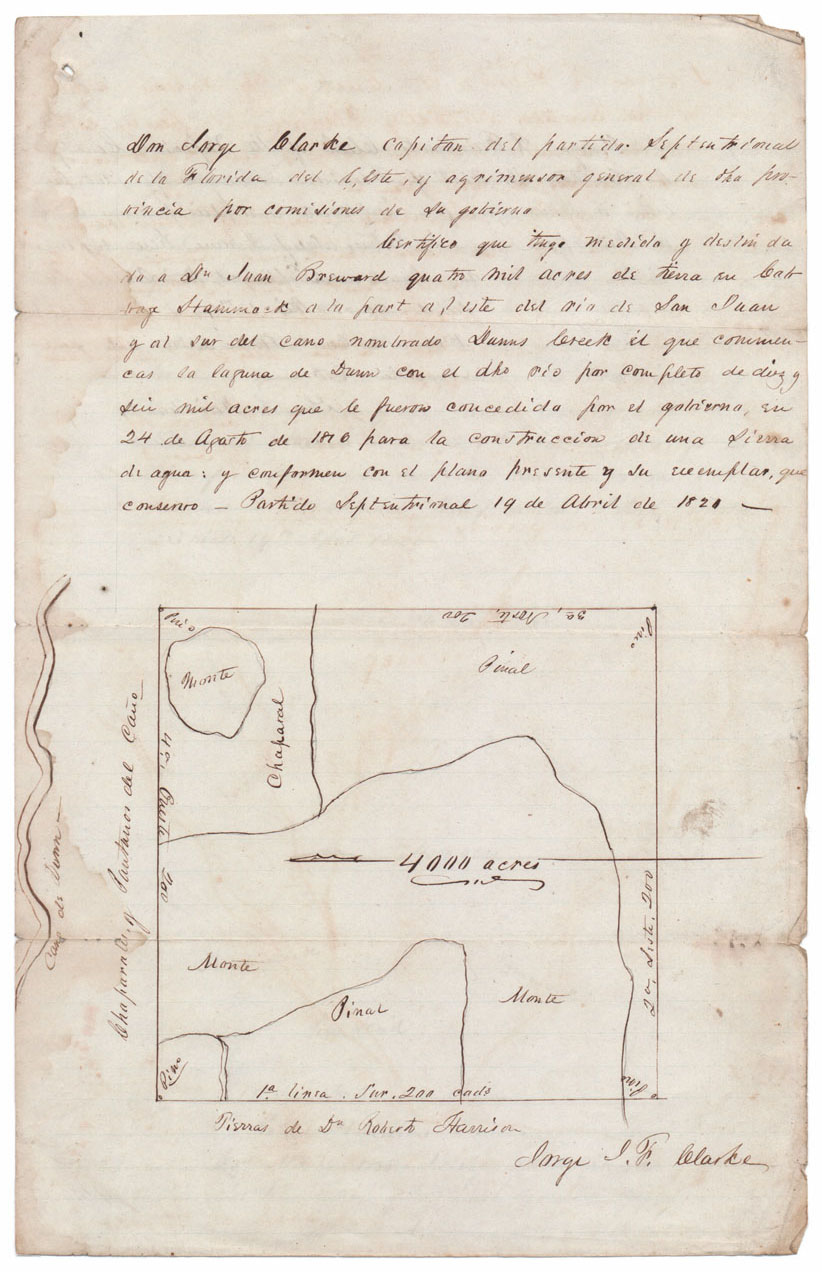 Don Jorge Clarke capitan del partido Septentrional
de la Florida del Este, y agrimensor general de dha pro-
vincia por comisiones de su gobierno
Certifico que tengo medido y deslinda
do a Dn Juan Breward quatro mil acres de tierra en Cab
bage Hammock a la part al este del rio de San Juan
y al sur del caño nombrado Dunns Creek el que commen-
cas la laguna de Dunn con el dho rio por completo de diez y
seis mil acres que le fueron concedida por el gobierno, en
24 de Agosto de 1816 para la construccion de una Sierra
de agua: y conformen con el plano presente y su exemplar, que
conservo — Partido Septentrional 19 de Abril de 1820 —
Pino
3a, Norte, 200
Pino
Monte
Pinal
Chaparal
4a, Oueste
200
4000 acres
Chaparales, y Pantanos del Caño
Caño de Dunn
Monte
Pinal
Monte
2a, Leste, 200
Pino
Pino
1a linea. Sur. 200 cads
Tierras de Dn Roberto Harrison
Jorge J. F. Clarke